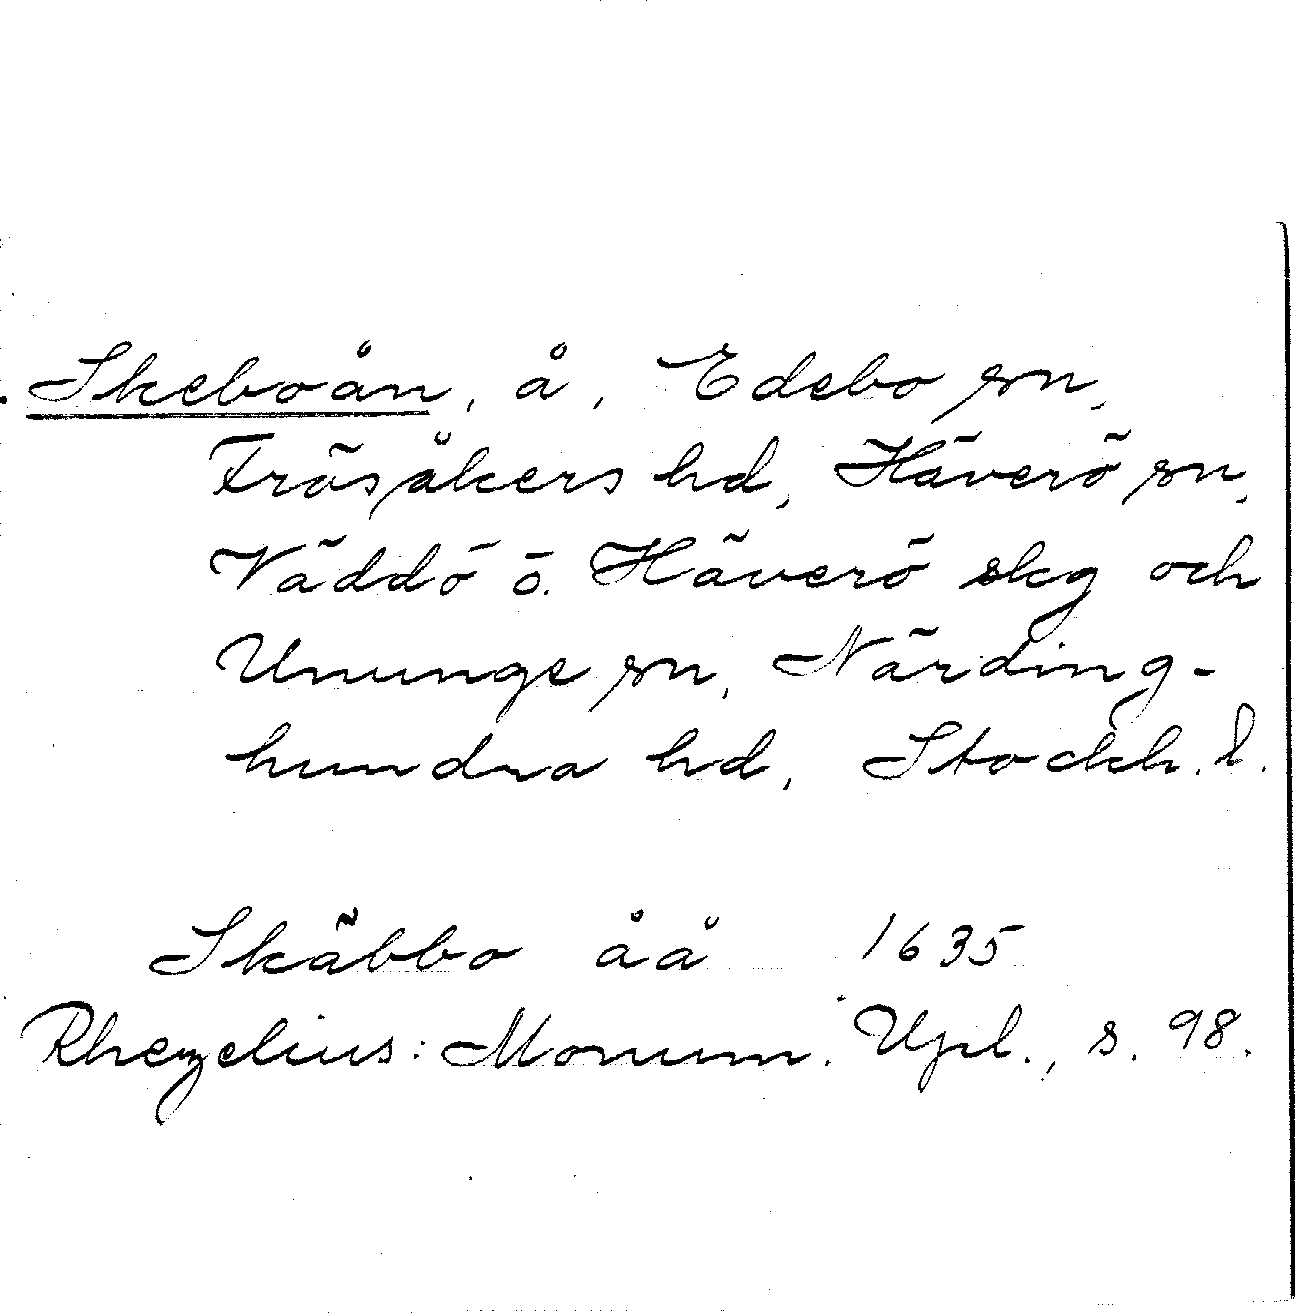 Skeboån, å, Edebo sn,
Frösåkers hd, Häverö sn,
Väddö o. Häverö skg och
Ununge sn, Närding-
hundra hd, Stockh. l.
Skäbbo åå 1635
Rhezelius: Monum. Upl., s. 98.